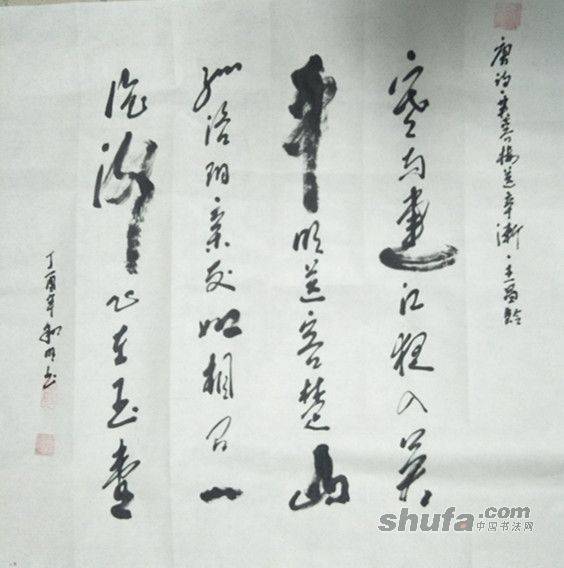 唐诗·芙蓉楼送辛渐·王昌龄
寒雨連江夜入吴
平明送客楚山
孤洛阳亲友如相问一
片冰心在玉壶
丁酉年
shufa.com
中国书法网